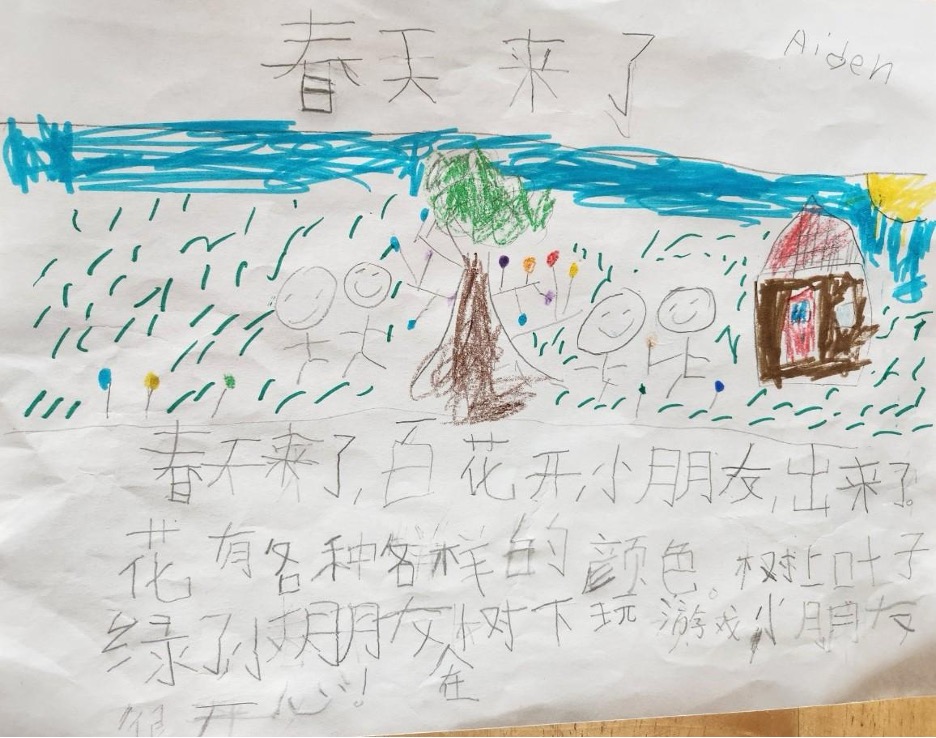 春天来了
Aiden
春天来了,百花开,小朋友,出来了。
花有各种各样的颜色。树上叶子
绿了小朋朋友在树下玩游戏小朋友
很开心!